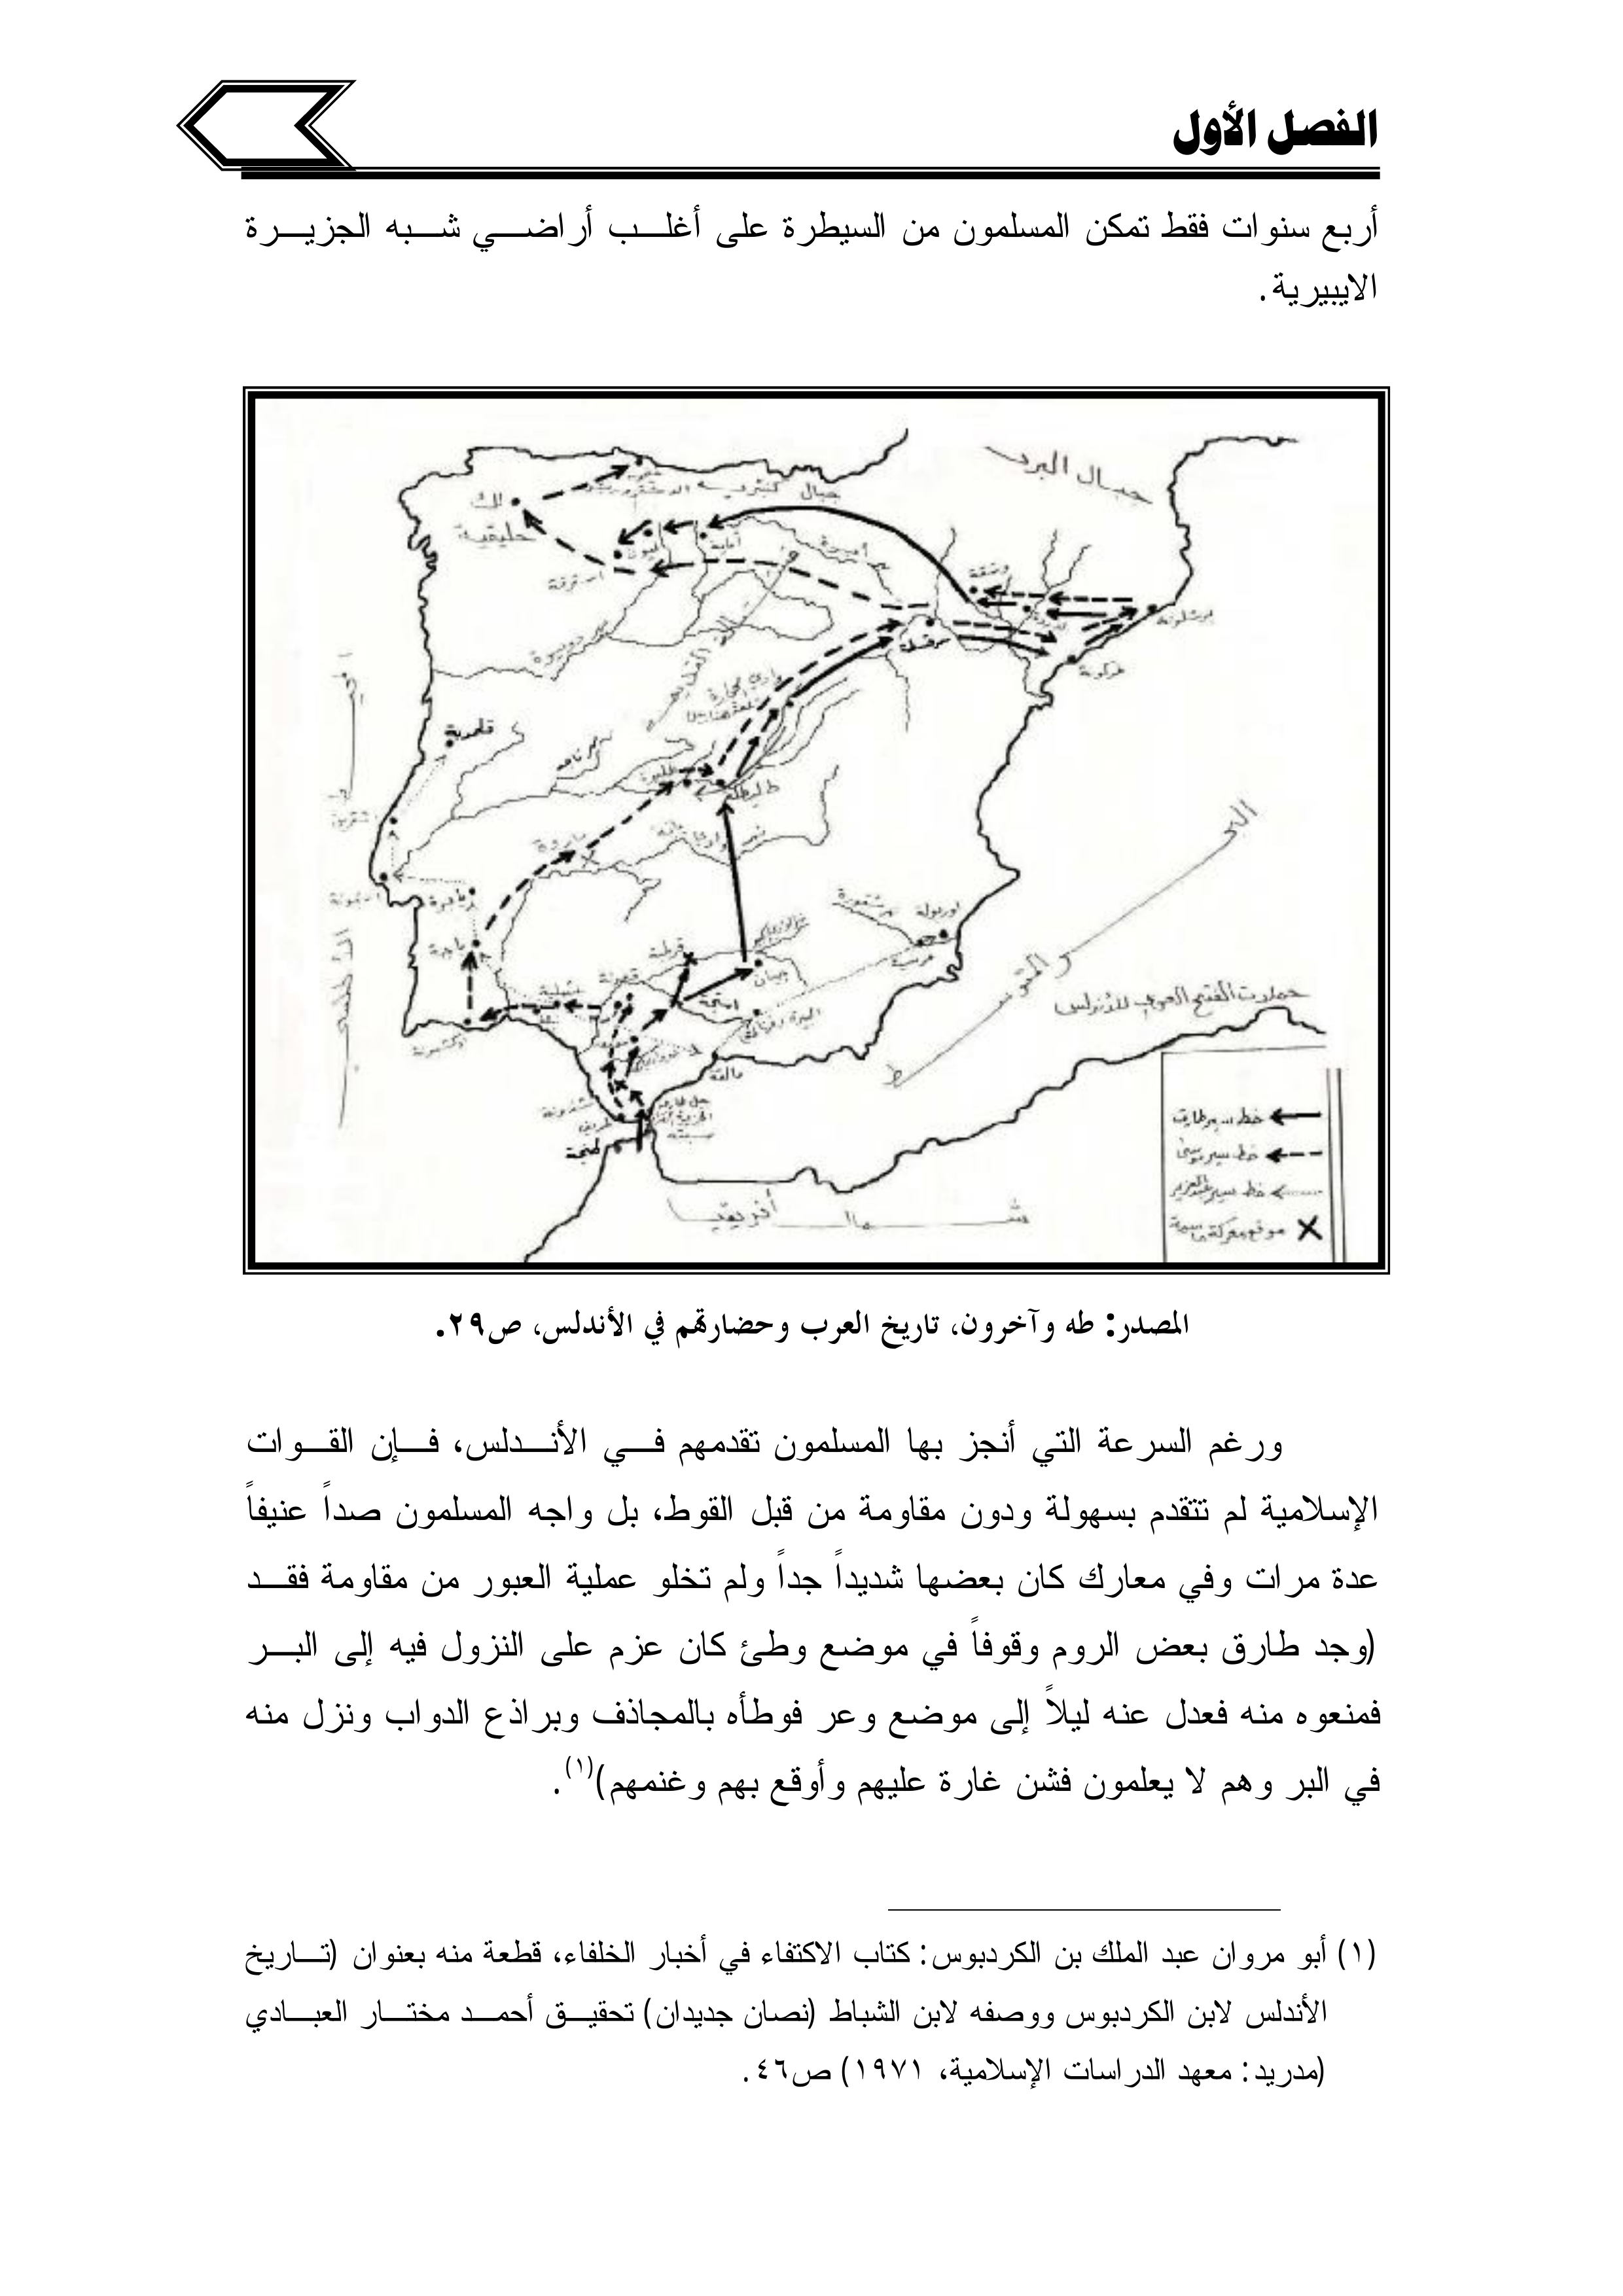 الفصل الأول
أربع سنوات فقط تمكن المسلمون من السيطرة على أغلب أراضي شبه الجزيرة
الايبيرية.
جبال البرت
جبال
لك
جليقية
ليون
أماية
استرقة
وشقة
برشلونة
طركونة
سرقسطة
وادي الحجارة
قلمرية
طليطلة
ماردة
باجة
قرطبة
جيان
استجة
اوريولة
مرسية
مالقة
طنجة
سبتة
البحر المتوسط
حملات الفتح العربي للأندلس
خط سير طارق
خط سير موسى
خط سير عبدالعزيز
موقع معركة حاسمة
شمال أفريقيا
المصدر: طه وآخرون، تاريخ العرب وحضارتهم في الأندلس، ص٢٩.
ورغم السرعة التي أنجز بها المسلمون تقدمهم في الأندلس، فإن القوات
الإسلامية لم تتقدم بسهولة ودون مقاومة من قبل القوط، بل واجه المسلمون صداً عنيفاً
عدة مرات وفي معارك كان بعضها شديداً جداً ولم تخلو عملية العبور من مقاومة فقد
(وجد طارق بعض الروم وقوفاً في موضع وطئ كان عزم على النزول فيه إلى البر
فمنعوه منه فعدل عنه ليلاً إلى موضع وعر فوطأه بالمجاذف وبراذع الدواب ونزل منه
في البر وهم لا يعلمون فشن غارة عليهم وأوقع بهم وغنمهم)(١).
(١) أبو مروان عبد الملك بن الكردبوس: كتاب الاكتفاء في أخبار الخلفاء، قطعة منه بعنوان (تاريخ
الأندلس لابن الكردبوس ووصفه لابن الشباط (نصان جديدان) تحقيق أحمد مختار العبادي
(مدريد: معهد الدراسات الإسلامية، ١٩٧١) ص٤٦.